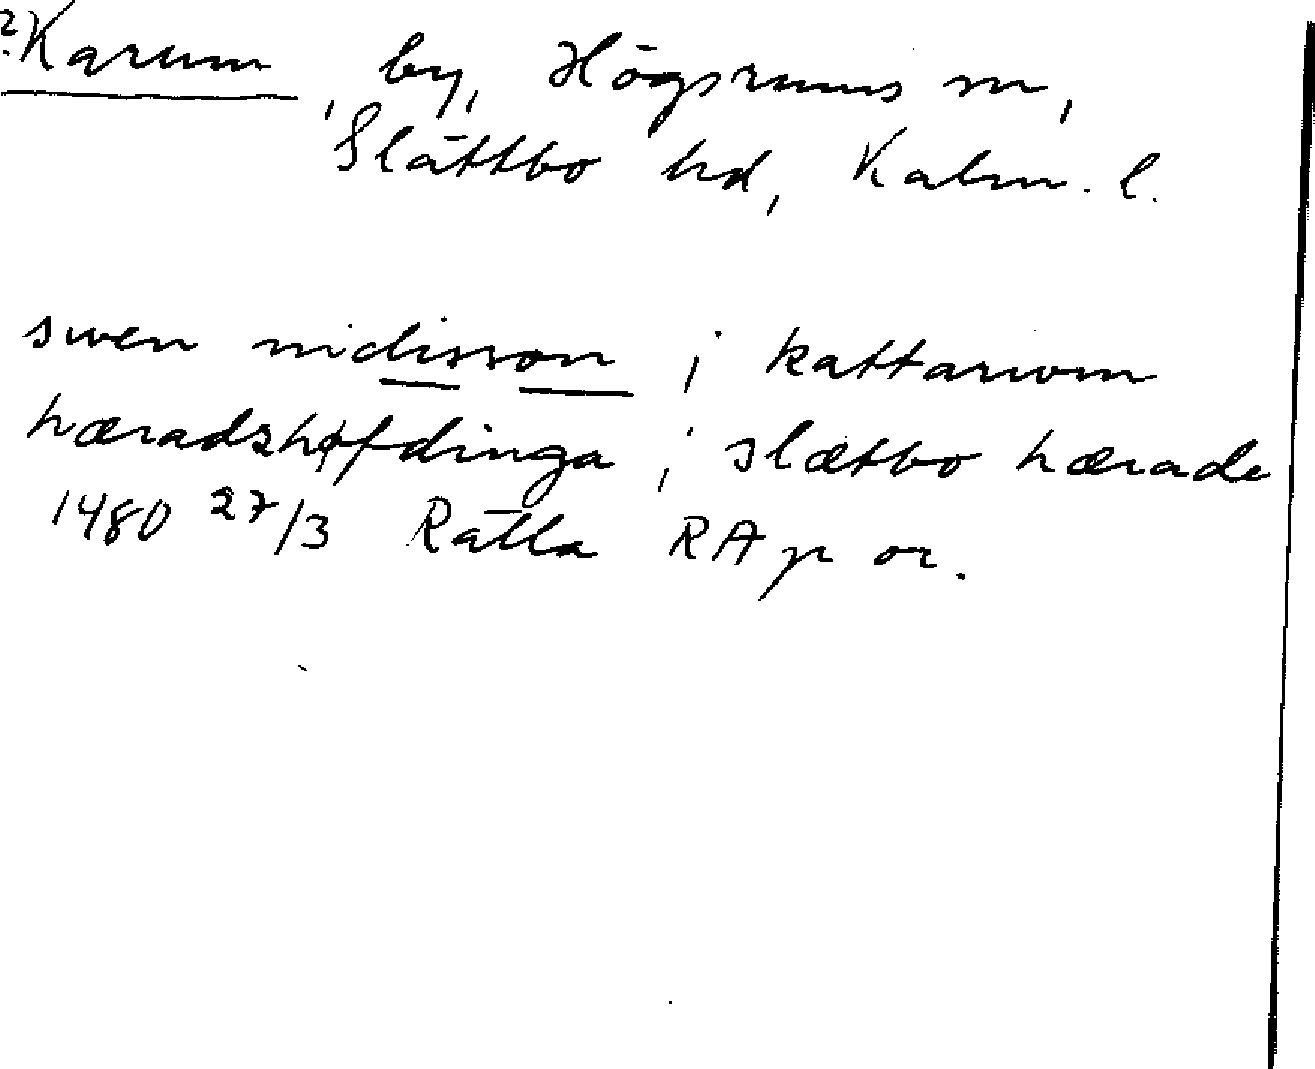 ?Karum, by, Högsrums sn,
Slättbo hd, Kalm. l.
swen nidisson i kattarwm
hæradzhøfdinga i slætbo hærade
1480 27/3 Rälla RA p or.